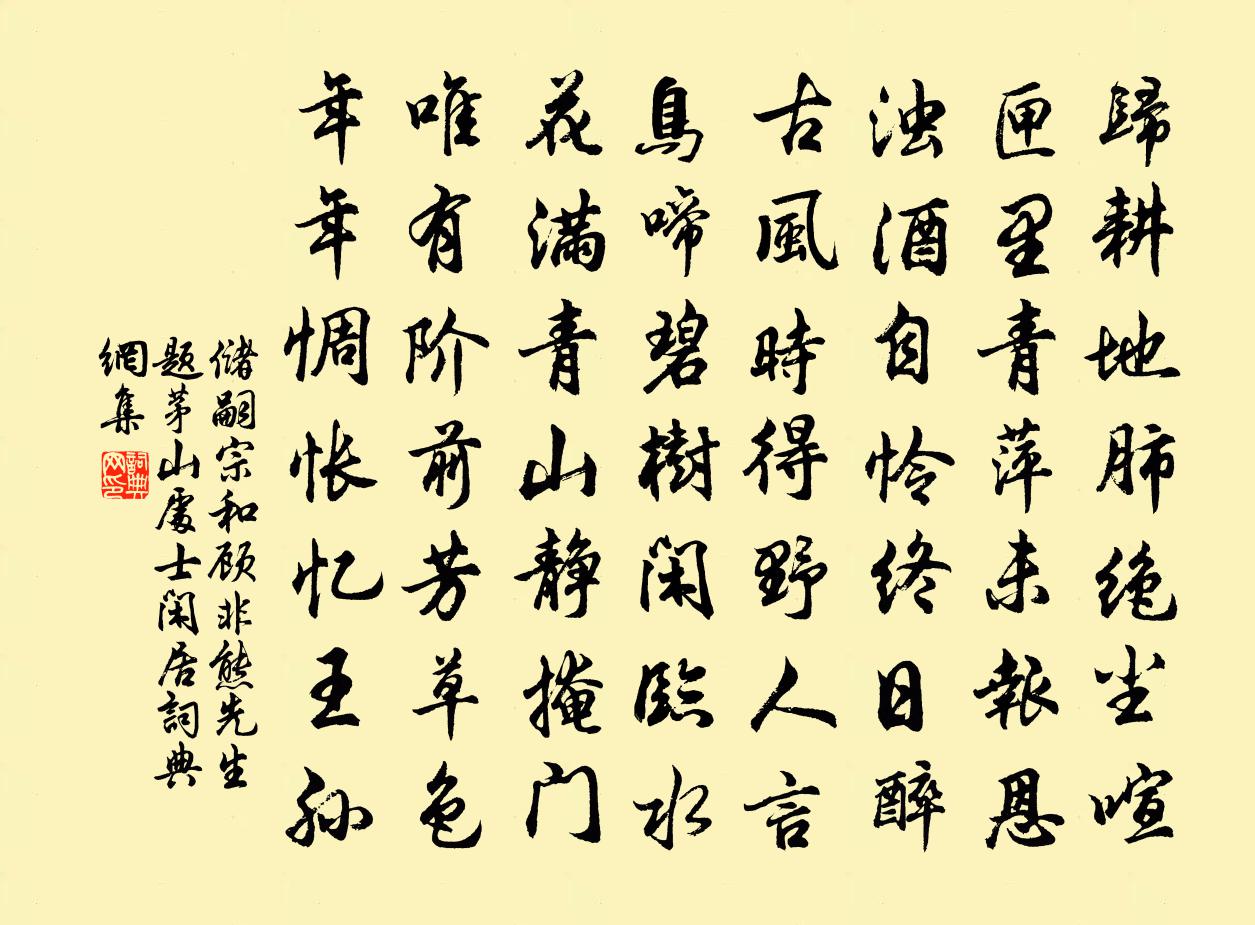 歸耕地肺绝尘喧
匣里青萍未報恩
浊酒自怜终日醉
古風時得野人言
鳥啼碧樹閑臨水
花满青山静掩门
唯有阶前芳草色
年年惆怅忆王孙
儲嗣宗和顾非熊先生
题茅山處士閑居詞典
網集
詞典网印